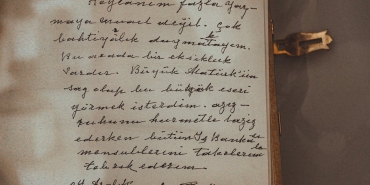 Heyecanım fazla yaz-
maya müsait değil. Çok
bahtiyarlık duymaktayım.
Bu arada bir eksiklik
vardır. Büyük Atatürk'ün
sağ olup bu büyük eseri
görmek isterdim. aziz
ruhunu hürmetle taziz
ederken bütün İş Bankası
mensuplarını takdirle
tebrik ederim